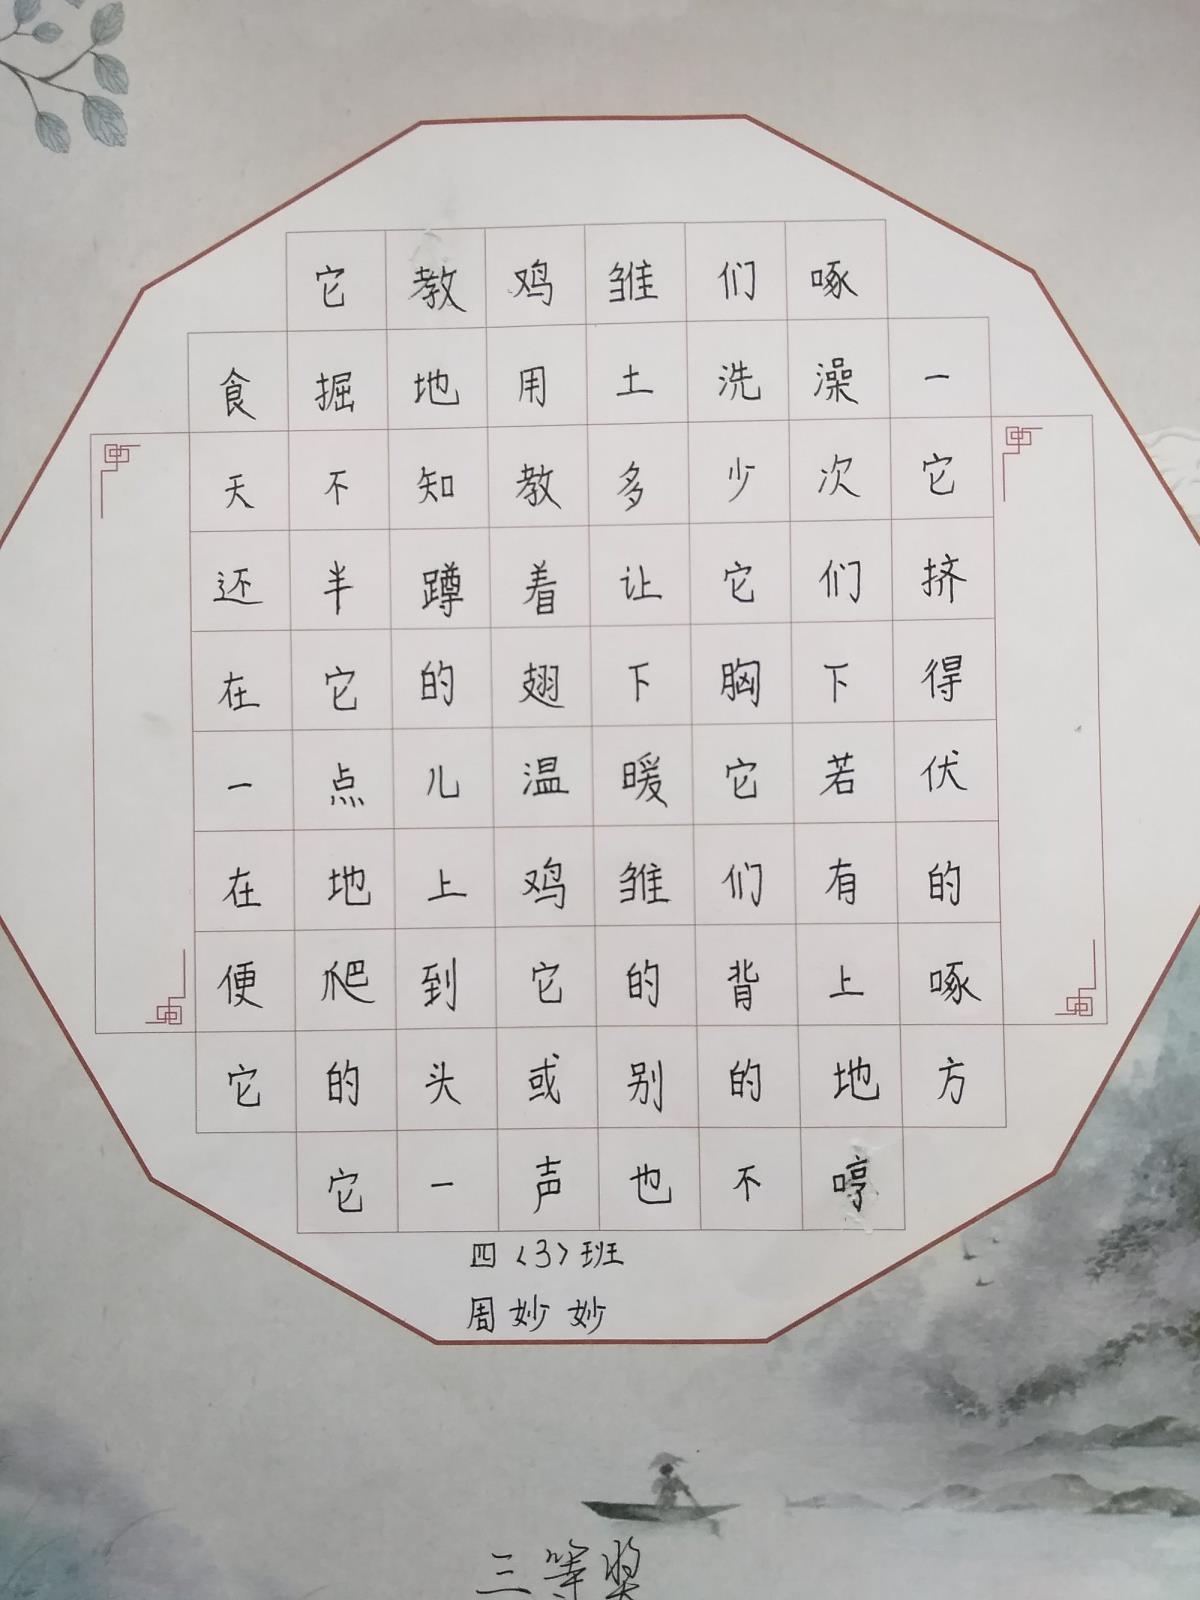 它教鸡雏们啄
食掘地用土洗澡一
天不知教多少次它
还半蹲着让它们挤
在它的翅下胸下得
一点儿温暖它若伏
在地上鸡雏们有的
便爬到它的背上啄
它的头或别的地方
它一声也不哼
四〈3〉班
周妙妙
三等奖